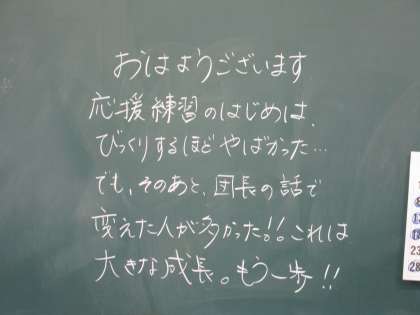 おはようございます
応援練習のはじめは、
びっくりするほどやばかった…
でも、そのあと、団長の話で
変えた人が多かった!!これは
大きな成長。もう一歩!!
23
28